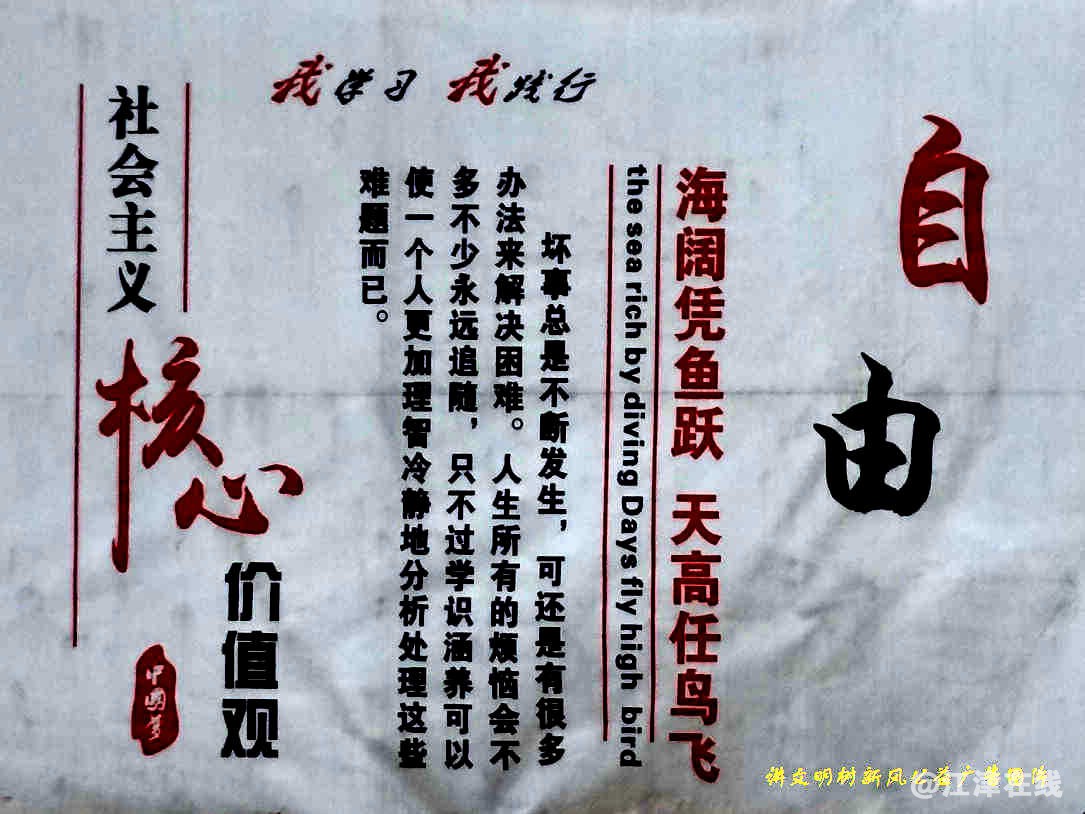 我学习 我践行
自由
海阔凭鱼跃 天高任鸟飞
the sea rich by diving Days fly high bird
坏事总是不断发生，可还是有很多
办法来解决困难。人生所有的烦恼会不
多不少永远追随，只不过学识涵养可以
使一个人更加理智冷静地分析处理这些
难题而已。
社会主义
核心
价值观
中國夢
讲文明树新风公益广告
@江津在线